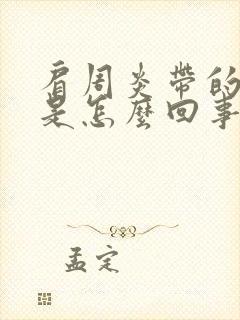 肩周炎带的
是怎麽回事
孟定